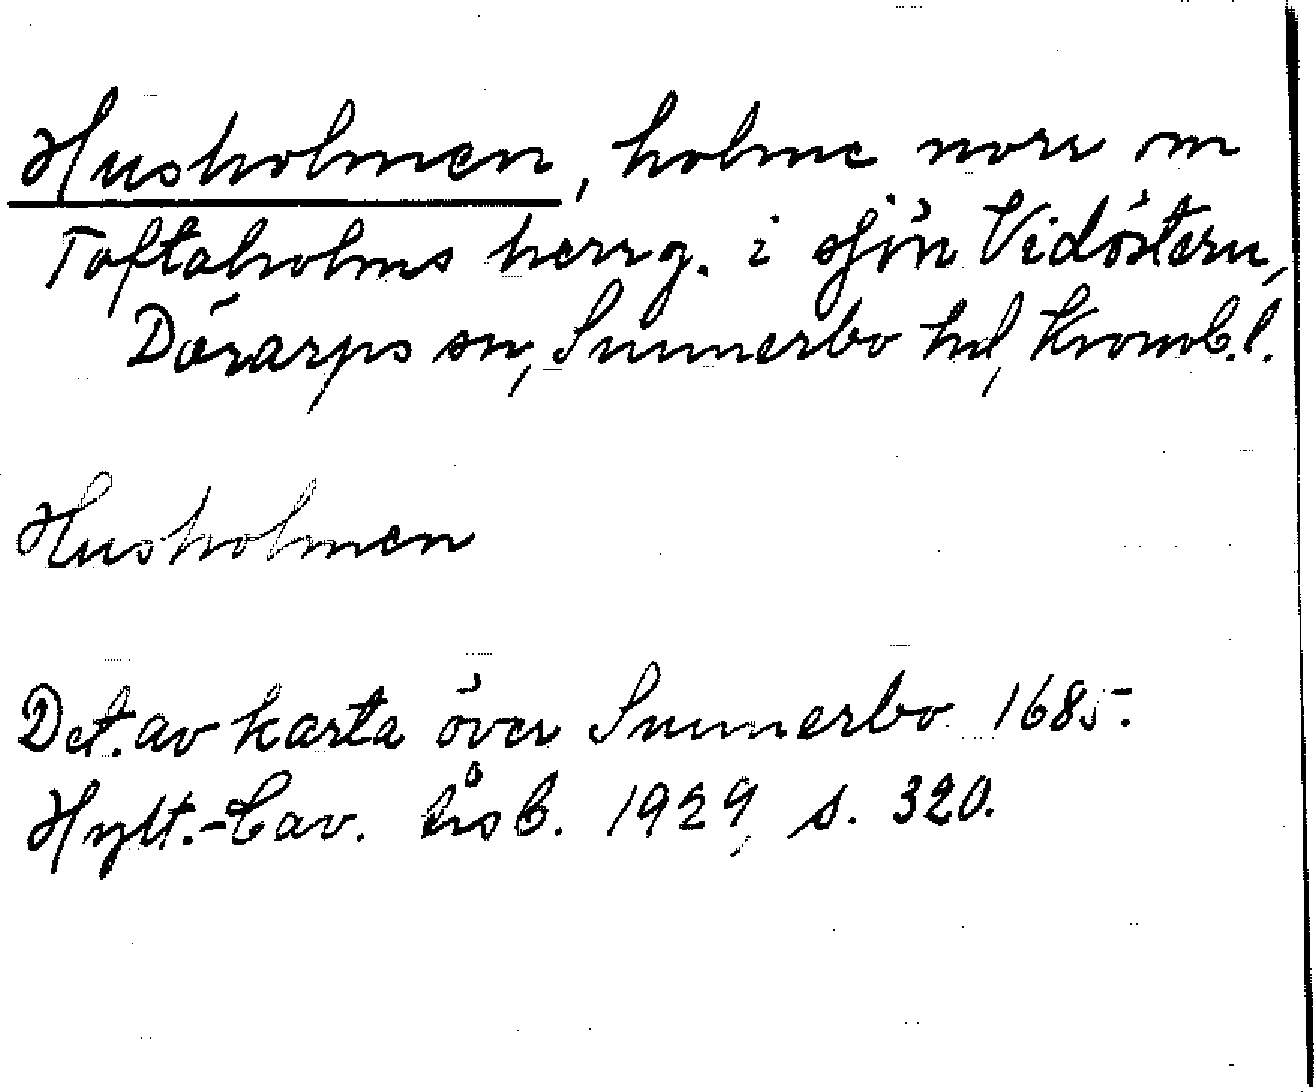 Husholmen, holme norr om
Toftaholms herrg. i sjön Vidöstern,
Dörarps sn, Sunnerbo hd, Kronob.l.
Husholmen
Det. av karta över Sunnerbo 1685.
Hylt.-Cav. årsb. 1929, s. 320.